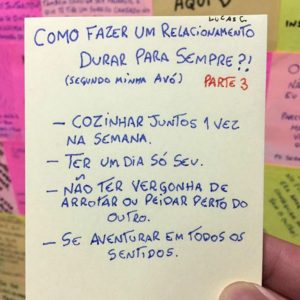 AQUI
LUCAS G.
COMO FAZER UM RELACIONAMENTO
DURAR PARA SEMPRE?!
(SEGUNDO MINHA AVÓ)
PARTE 3
- COZINHAR JUNTOS 1 VEZ
NA SEMANA.
- TER UM DIA SÓ SEU.
- NÃO TER VERGONHA DE
ARROTAR OU PEIDAR PERTO DO
OUTRO.
- SE AVENTURAR EM TODOS OS
SENTIDOS.